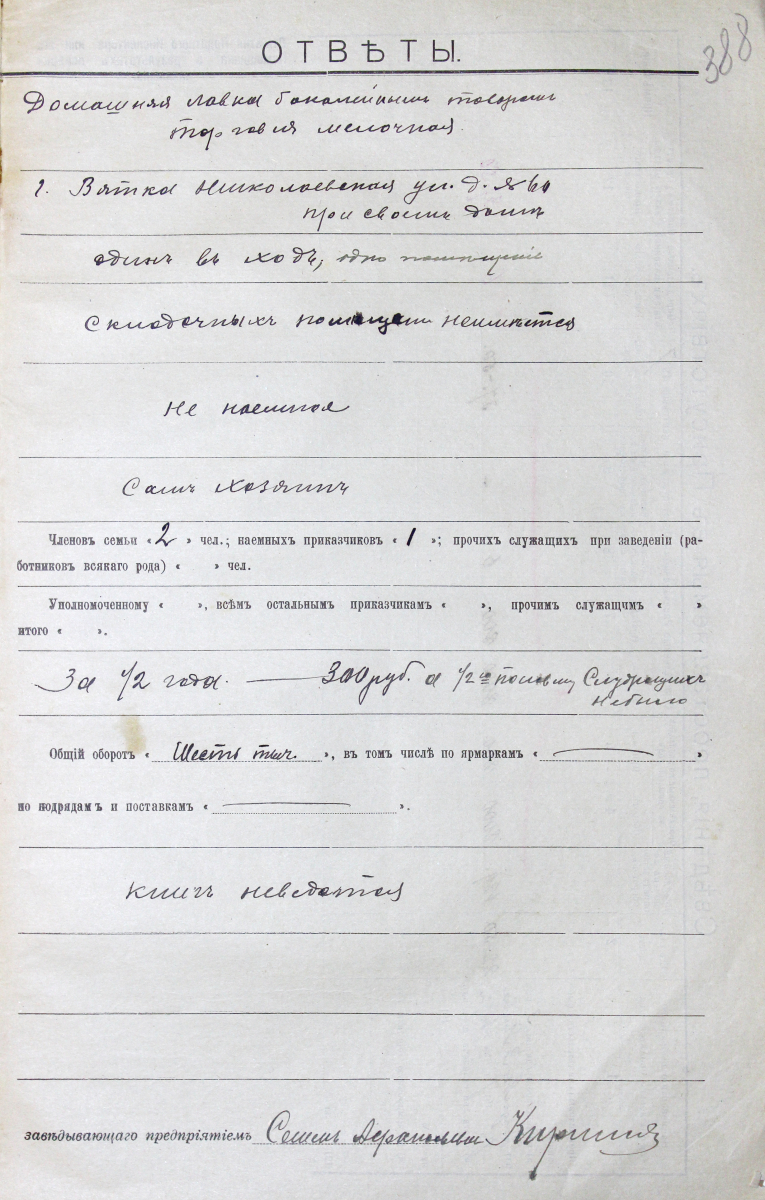 388
ОТВѢТЫ.
Домашняя лавка бакалейнымъ товаромъ
торговля мелочная.
г. Вятка Николаевская ул. д. №
при своемъ домѣ
одинъ въ ходъ, одно помѣщеніе
Складочныхъ помещеніи неимѣется
Не наемное
Самъ хозяинъ
Членовъ семьи « 2 » чел.; наемныхъ приказчиковъ « 1 »; прочихъ служащихъ при заведеніи (ра-
ботниковъ всякаго рода) « » чел.
Уполномоченному « », всѣмъ остальнымъ приказчикамъ « », прочимъ служащимъ « »
итого « ».
За 1/2 года. — 300 руб. а 1/2 Служащихъ
небыло
Общій оборотъ « Шесть тыс. », въ томъ числѣ по ярмаркамъ « — »
по подрядамъ и поставкамъ « — ».
книгъ неведется
завѣдывающаго предпріятіемъ Семенъ